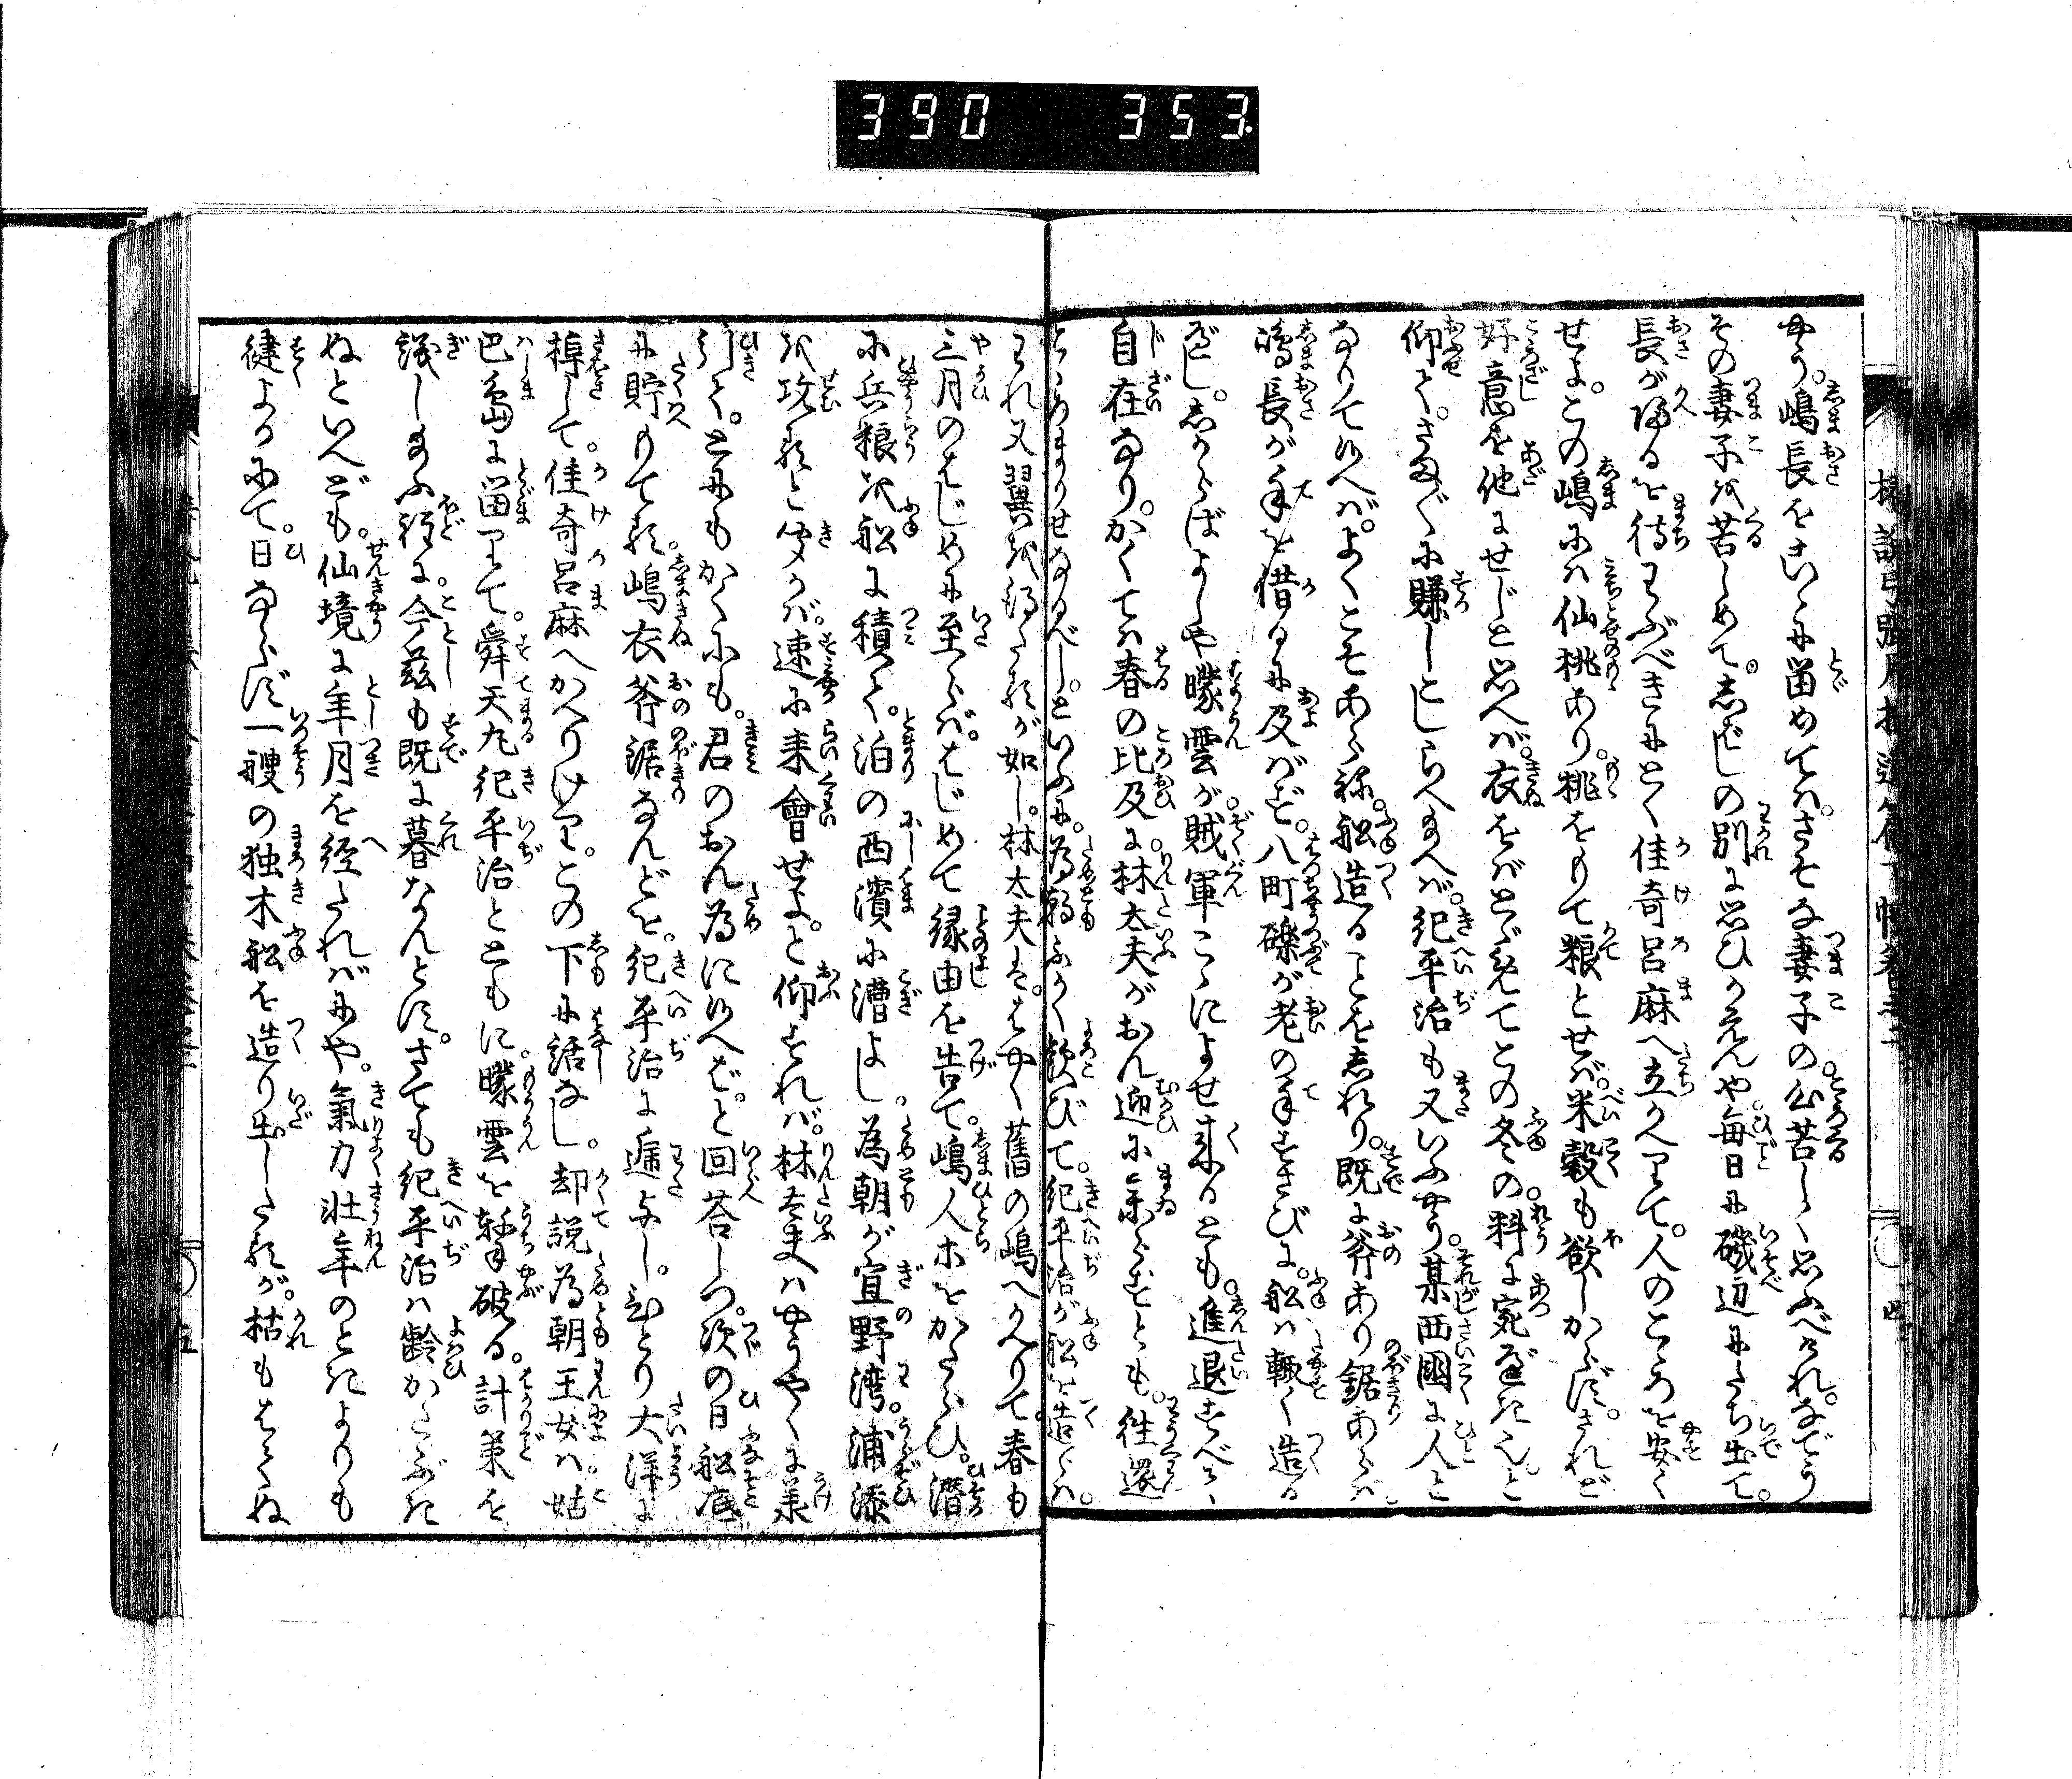 390 353
やう。嶋長をこゝに留めては。さぞな妻子の心苦しく思ふべけれ。などう
その妻子を苦しめて。しばしの別に思ひかえんや。毎日に磯辺にたち出て。
長が帰るを待わぶべきにとく佳奇呂麻へ立かへりて。人のこゝろを安く
せよ。この嶋には仙桃あり。桃をもて粮とせば。米穀も欲しからず。されど
好意を他にせじと思へば。衣をばとゞめてこの冬の料に宛べきぞと
仰て。さま〴〵に賺しこしらへ給へば。紀平治も又いふやう。某西國に人と
なりて候へば。よくこそあらね。船造ることをしれり。既に斧あり鋸あらば。
嶋長が手を借るに及ばず。八町礫が老の手すさびに。船は輒く造る
べし。しからばよしや曚雲が。賊軍こゝによせ来るとも。進退すべて
自在なり。かくては春の比及に。林太夫がおん迎に参らずとも。往還
こゝろまかせなるべし。といふに。為朝ふかく歓びて。紀平治が船を造らば。
われ又翼を得たるが如し。林太夫は。はやく舊の嶋へかへりて。春も
三月のはじめに至らば。はじめて縁由を告て。嶋人ホをかたらひ。潜
に兵粮を船に積て。泊の西濱に漕よし。為朝が宜野湾。浦添
を攻ると聞かば。速に来會せよ。と仰すれば。林太夫はやうやくに承
引て。とにもかくにも。君のおん為に候へば。と回答しつ。次の日船底
に貯もてる嶋衣斧鋸なんどを。紀平治に逓与し。ひとり大洋に
棹して。佳奇呂麻へかへりけり。この下に話なし。却説為朝王女は。姑
巴島に留りて。舜天丸紀平治とともに。曚雲を撃破る。計策を
議し給ふ程に。今茲も既に暮なんとす。さても紀平治は齢かたぶき
ぬといへども。仙境に年月を経たればにや。氣力壮年のときよりも
健よかにて。日ならず一艘の独木船を造り出したるが。枯もはてぬ